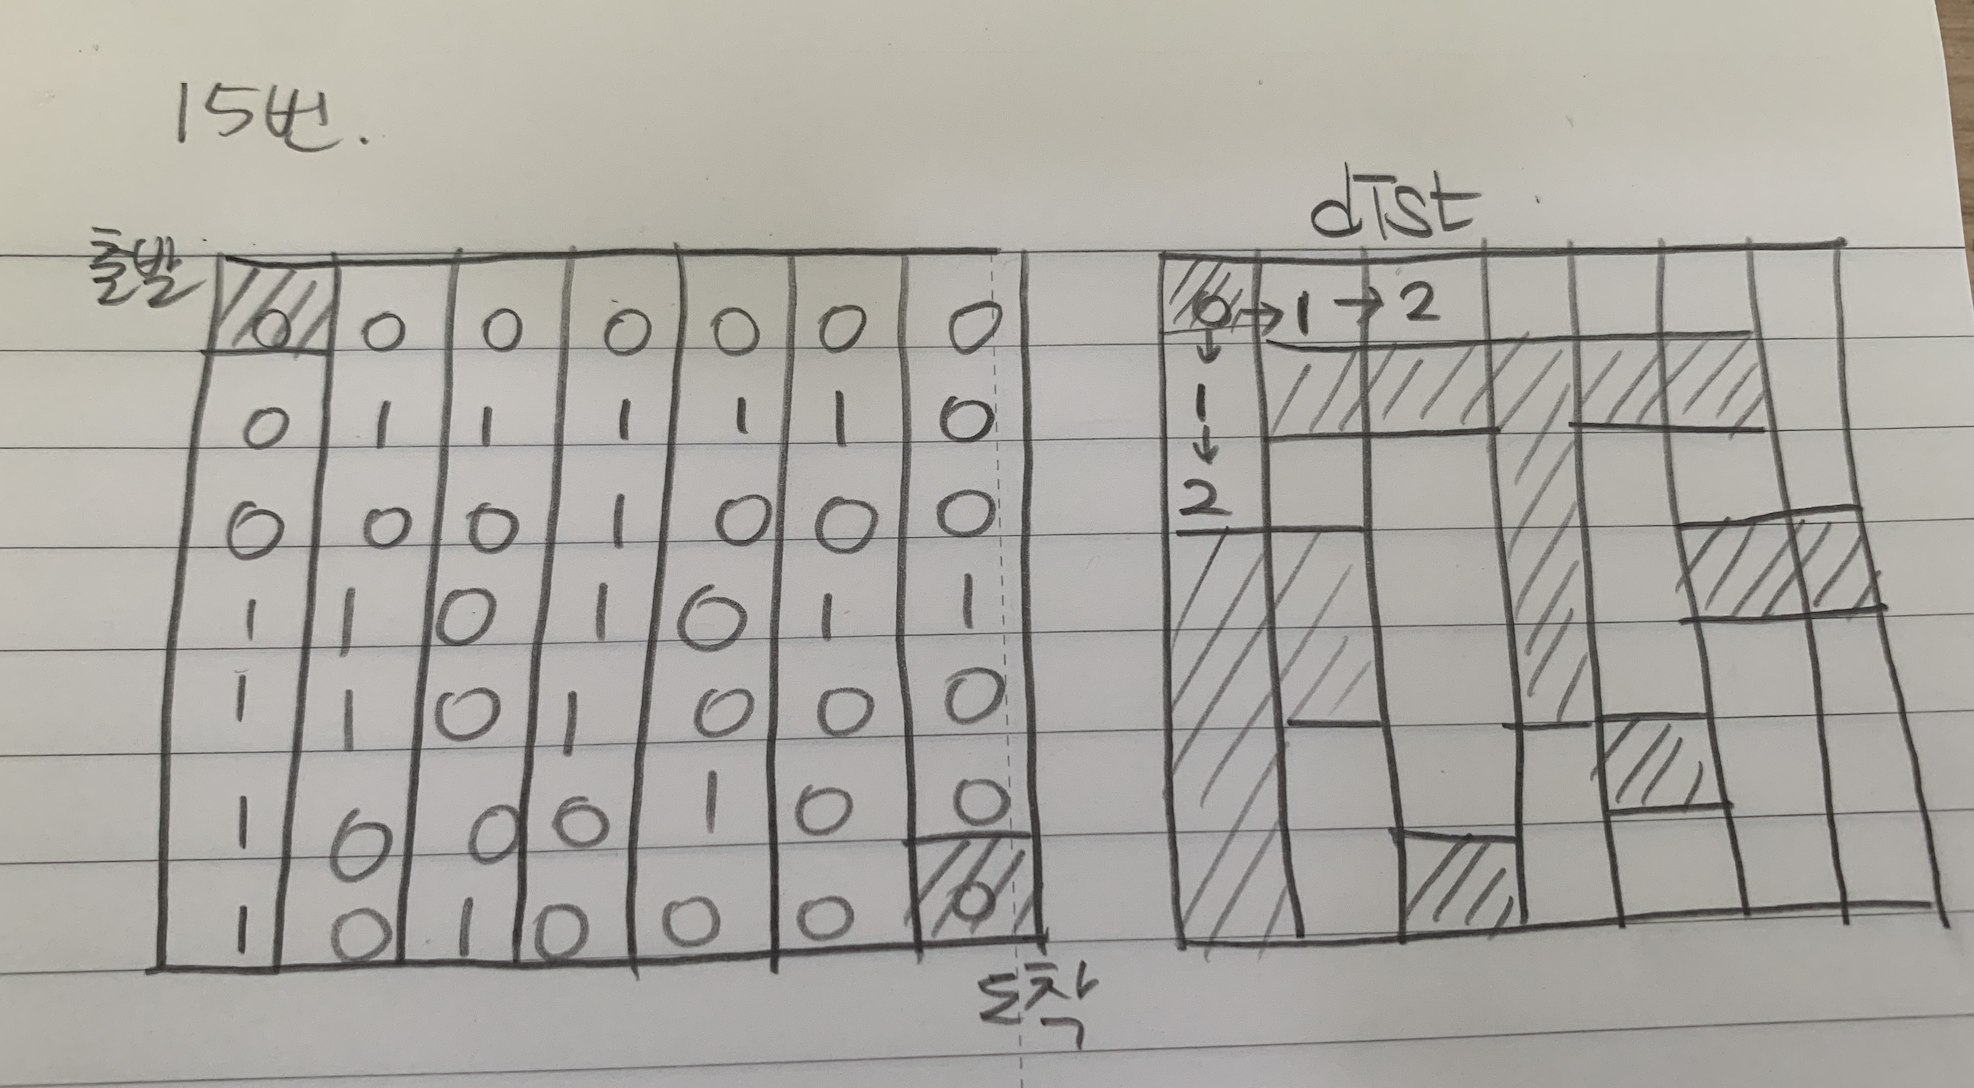 15번.
dist
출발
0 0 0 0 0 0 0
0 1 1 1 1 1 0
0 0 0 1 0 0 0
1 1 0 1 0 1 1
1 1 0 1 0 0 0
1 0 0 0 1 0 0
1 0 1 0 0 0 0
도착
0 → 1 → 2
↓
1
↓
2